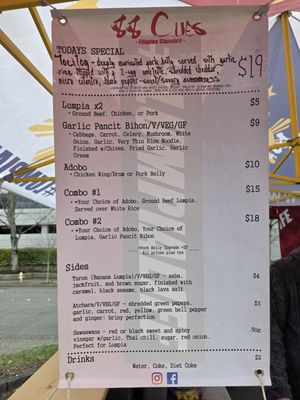 88 Cues
- Filipino Classics -
TODAYS SPECIAL
Tocilog - deeply marinated pork belly served with garlic
rice topped with a 2-egg omelette, shredded cheddar,
micro cilantro, black pepper - sweet/savory awesomeness
$19
Lumpia x2 $5
• Ground Beef, Chicken, or Pork
Garlic Pancit Bihon/V/VEG/GF $9
• Cabbage, Carrot, Celery, Mushroom, White
Onion, Garlic, Very Thin Rice Noodle,
Finished w/Chives, Fried Garlic, Garlic
Cream
Adobo $10
• Chicken Wing/Drum or Pork Belly
Combo #1 $15
• •Your Choice of Adobo, Ground Beef Lumpia,
Served over White Rice
Combo #2 $18
• •Your Choice of Adobo, Your Choice of
Lumpia, Garlic Pancit Bihon
•Pork Belly Upgrade +$3
All prices plus tax
Sides
Turon (Banana Lumpia)/V/VEG/GF - saba, $4
jackfruit, and brown sugar, finished with
caramel, black sesame, black lava salt
Atchara/V/VEG/GF - shredded green papaya, $3
garlic, carrot, red, yellow, green bell pepper
and ginger; briny perfection
Sawsawans - red or black sweet and spicy .50¢
vinegar w/garlic, Thai chili, sugar, red onion.
Perfect for Lumpia
Drinks $2
Water, Coke, Diet Coke